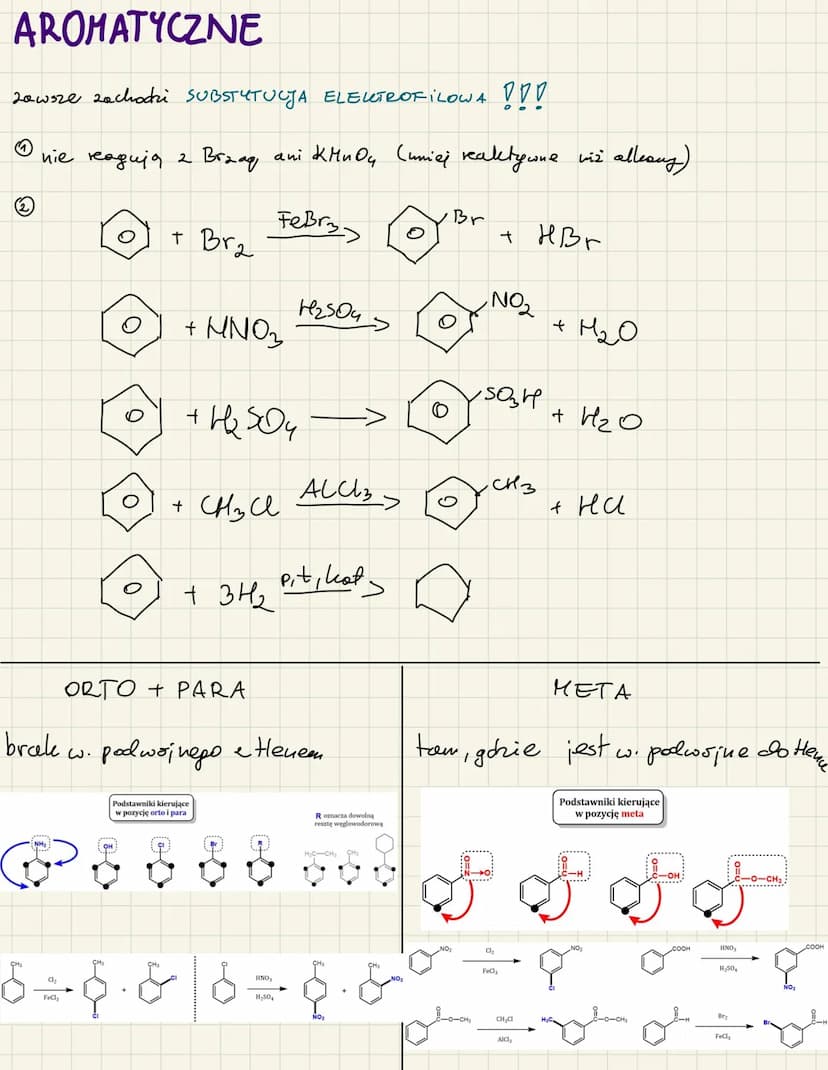 AROMATYCZNE
zawsze zachodzi SUBSTYTUCJA ELEKTROFILOWA !!!
① nie reagują z Br2aq ani KMnO4 (mniej reaktywne niż alkeny)
②
+ Br2 FeBr3 Br + HBr
+ HNO3 H2SO4 NO2 + H2O
+ H2SO4 SO3H + H2O
+ CH3Cl AlCl3 CH3 + HCl
+ 3H2 p,t,kat
ORTO + PARA
brak w. podwójnego z tlenem
Podstawniki kierujące
w pozycję orto i para
R oznacza dowolną
resztę węglowodorową
NH2 OH Cl Br R H3C—CH2 CH3
CH3 Cl2 FeCl3 CH3 Cl + CH3 Cl
Cl HNO3 H2SO4 CH3 NO2 + CH3 NO2
META
tam, gdzie jest w. podwójne do tlenu
Podstawniki kierujące
w pozycję meta
O N→O O C—H O C—OH O C—O—CH3
NO2 Cl2 FeCl3 NO2 Cl
COOH HNO3 H2SO4 COOH NO2
O C—O—CH3 CH3Cl AlCl3 H3C O C—O—CH3
O C—H Br2 FeCl3 Br O C—H